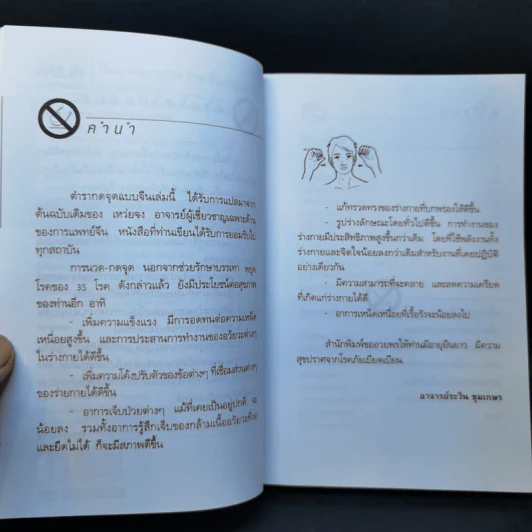 คำนำ
ตำรากดจุดแบบจีนเล่มนี้ ได้รับการแปลมาจาก
ต้นฉบับเดิมของ เหว่ยจง อาจารย์ผู้เชี่ยวชาญเฉพาะด้าน
ของการแพทย์จีน หนังสือที่ท่านเขียนได้รับการยอมรับไป
ทุกสถาบัน
การนวด-กดจุด นอกจากช่วยรักษาบรรเทา
โรคของ 35 โรค ดังกล่าวแล้ว ยังมีประโยชน์ต่อสุขภาพ
ของท่านอีก อาทิ
- เพิ่มความแข็งแรง มีการอดทนต่อความเหน็ด
เหนื่อยสูงขึ้น และการประสานการทำงานของอวัยวะต่างๆ
ในร่างกายได้ดีขึ้น
- เพิ่มความโค้งปรับตัวของข้อต่างๆ ที่เชื่อมส่วนต่างๆ
ของร่างกายได้ดีขึ้น
- อาการเจ็บป่วยต่างๆ แม้ที่เคยเป็นอยู่ปกติ จะ
น้อยลง รวมทั้งอาการรู้สึกเจ็บของกล้ามเนื้ออวัยวะที่งอ
และยืดไม่ได้ ก็จะมีสภาพดีขึ้น
- แก้ทรวดทรงของร่างกายที่บกพร่องให้ดีขึ้น
- รูปร่างลักษณะโดยทั่วไปดีขึ้น การทำงานของ
ร่างกายมีประสิทธิภาพสูงขึ้นกว่าเดิม โดยที่ใช้พลังงานทั้ง
ร่างกายและจิตใจน้อยลงกว่าเดิมสำหรับงานที่เคยปฏิบัติ
อย่างเดียวกัน
- มีความสามารถที่จะคลาย และลดความเครียด
ที่เกิดแก่ร่างกายได้ดี
- อาการเหน็ดเหนื่อยที่เรื้อรังจะน้อยลงไป
สำนักพิมพ์ขออวยพรให้ท่านมีอายุยืนยาว มีความ
สุขปราศจากโรคภัยเบียดเบียน
อาจารย์ระวิน ชุมเกษา